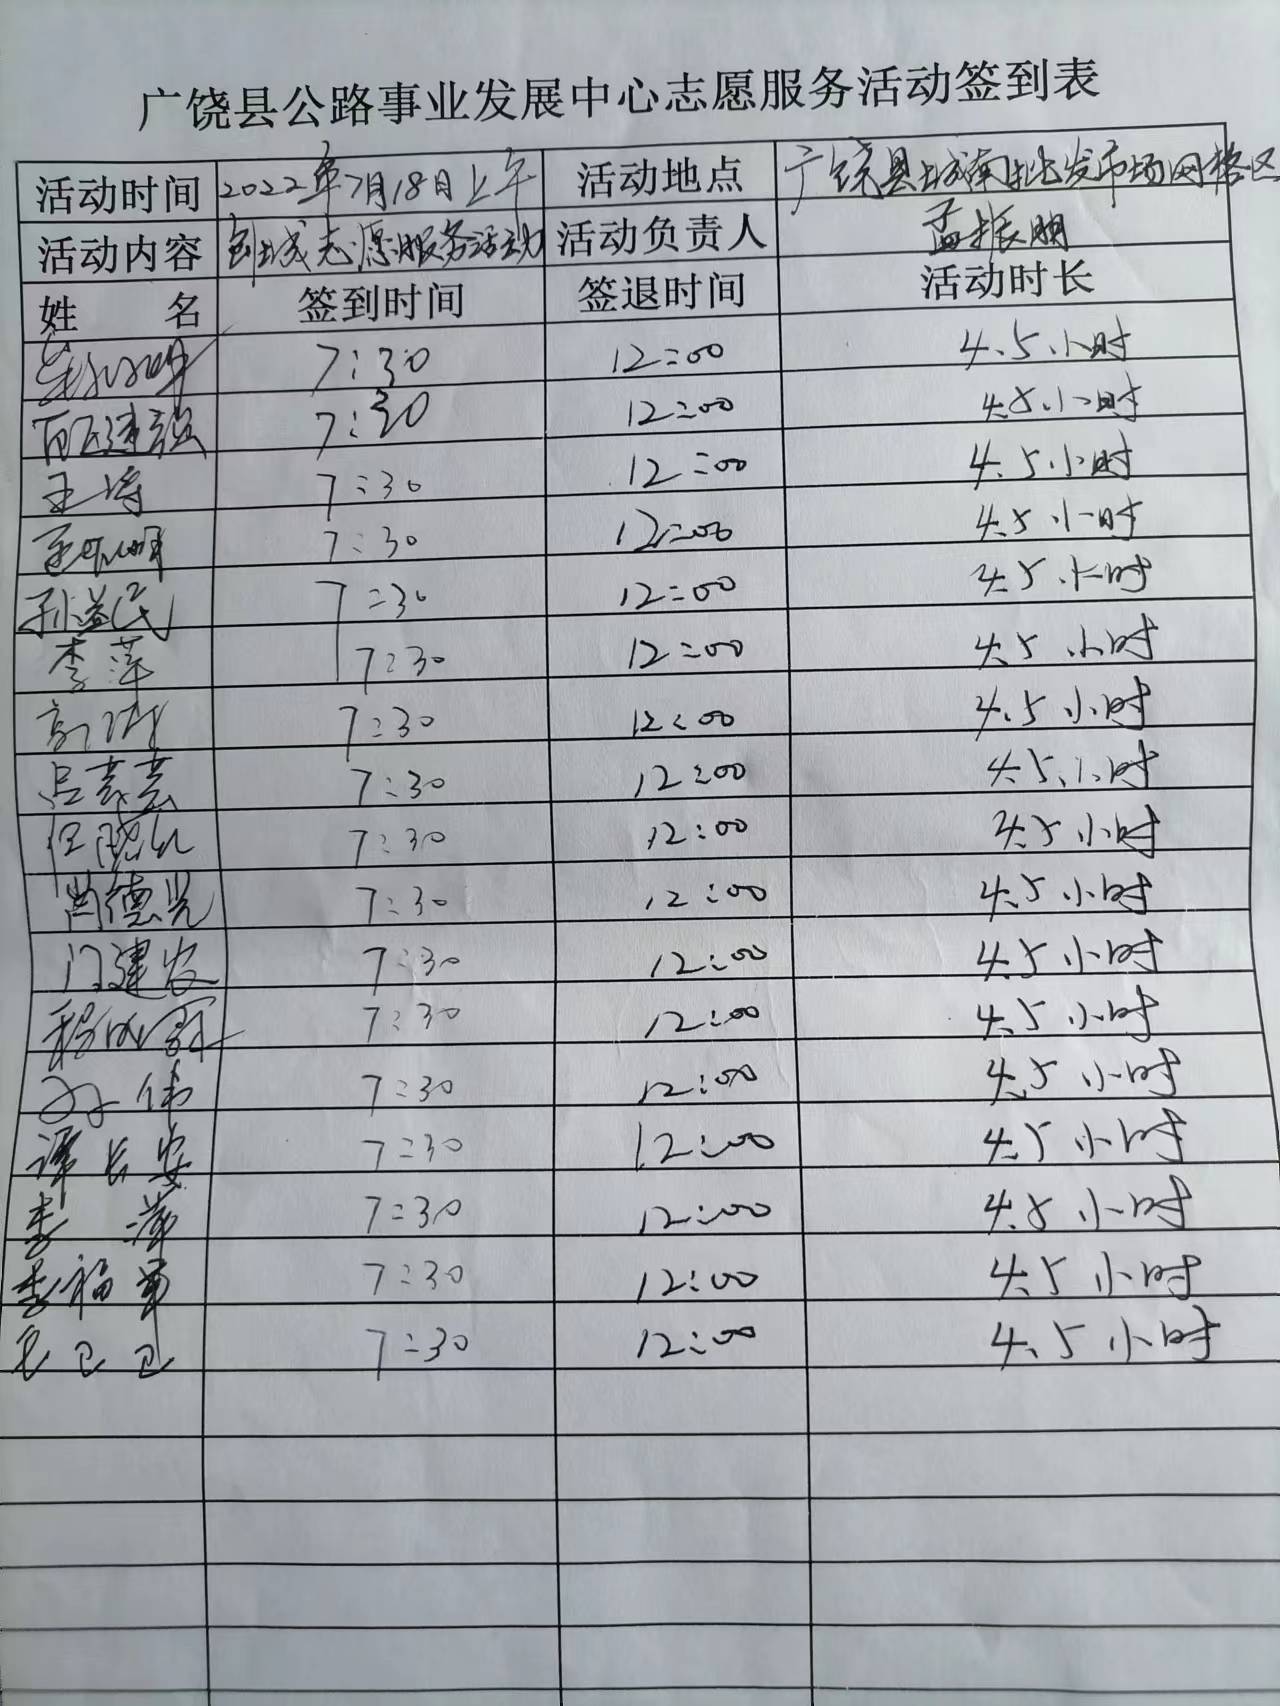 广饶县公路事业发展中心志愿服务活动签到表
活动时间 2022年7月18日上午 活动地点 广饶县城南批发市场网格区
活动内容 创城志愿服务活动 活动负责人 孟振明
姓 名 签到时间 签退时间 活动时长
7:30 12:00 4.5小时
建强 7:30 12:00 4.5小时
王涛 7:30 12:00 4.5小时
7:30 12:00 4.5小时
孙益民 7:30 12:00 4.5小时
李萍 7:30 12:00 4.5小时
7:30 12:00 4.5小时
吕彦彦 7:30 12:00 4.5小时
任晓红 7:30 12:00 4.5小时
尚德 7:30 12:00 4.5小时
门建农 7:30 12:00 4.5小时
7:30 12:00 4.5小时
伟 7:30 12:00 4.5小时
谭长安 7:30 12:00 4.5小时
李萍 7:30 12:00 4.5小时
李福军 7:30 12:00 4.5小时
毛卫卫 7:30 12:00 4.5小时